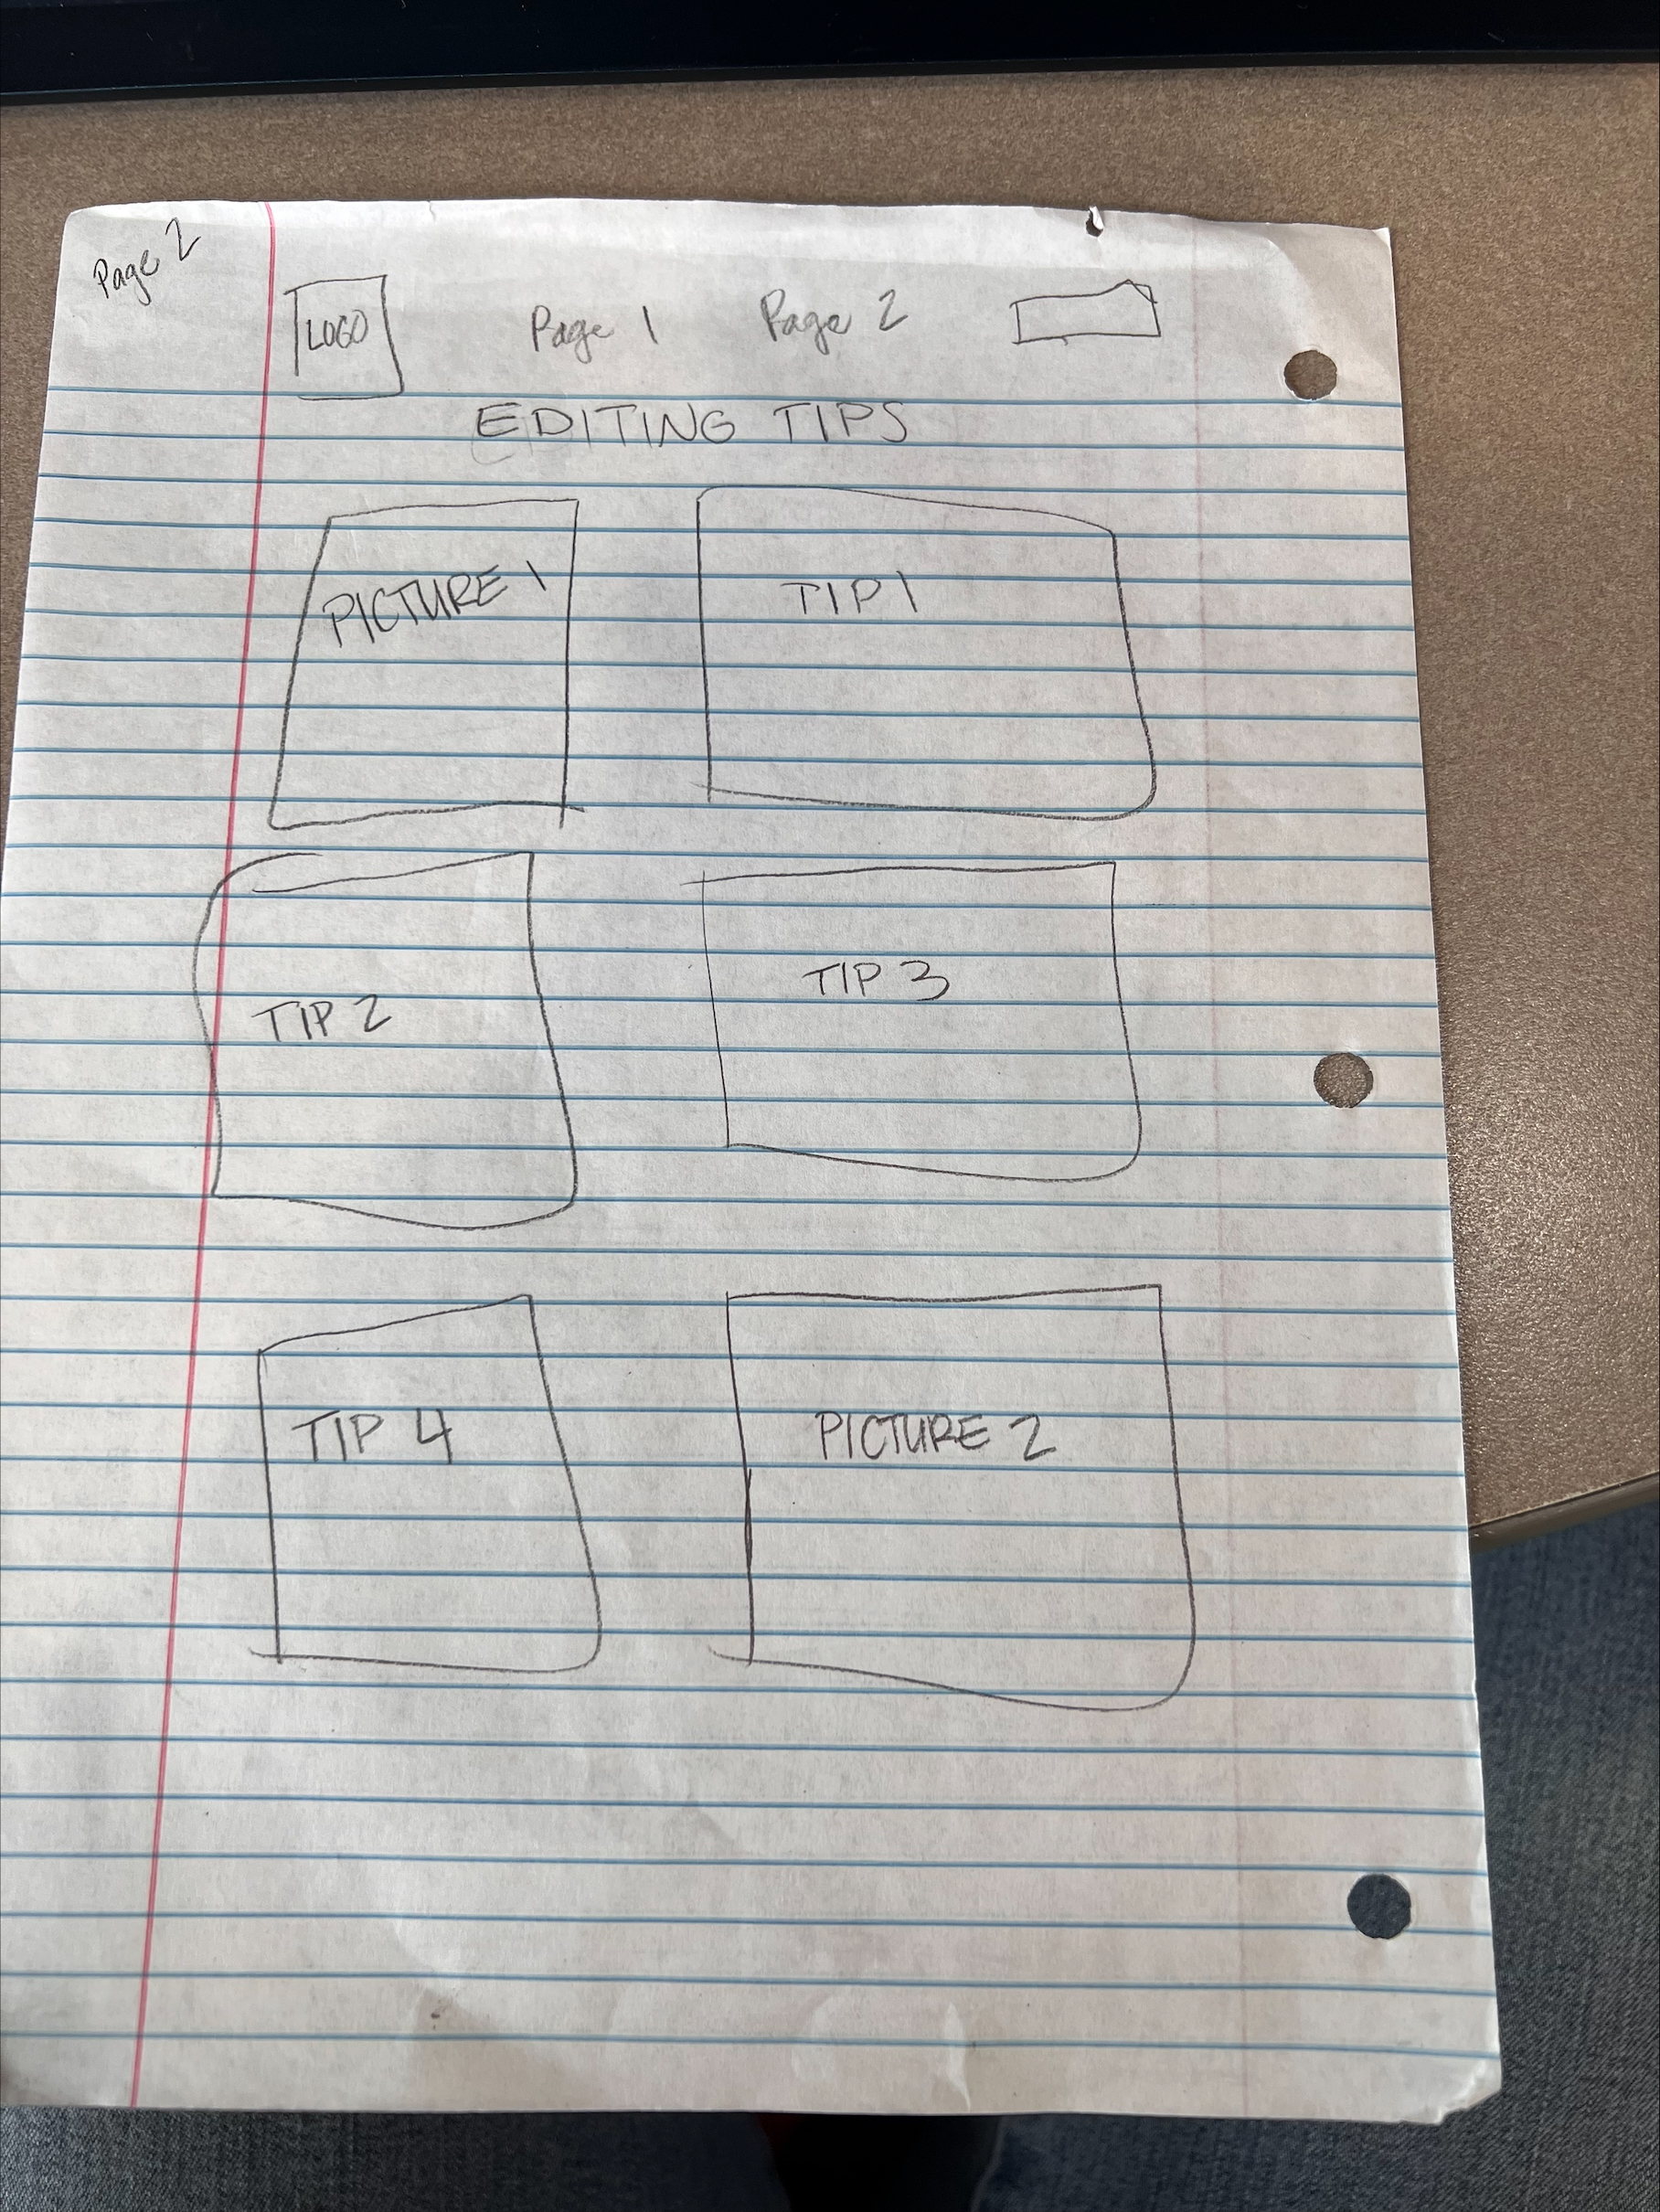 Page 2
LOGO Page 1 Page 2
EDITING TIPS
PICTURE 1 TIP 1
TIP 2 TIP 3
TIP 4 PICTURE 2